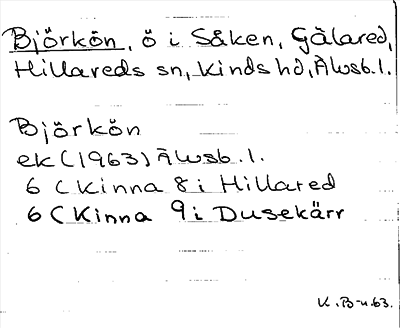 Björkön, ö i Såken, Gälared,
Hillareds sn, Kinds hd, Älvsb.l.
Björkön
ek (1963) Älvsb.l.
6 C Kinna 8 i Hillared
6 C Kinna 9 i Dusekärr
K.B-n.63.